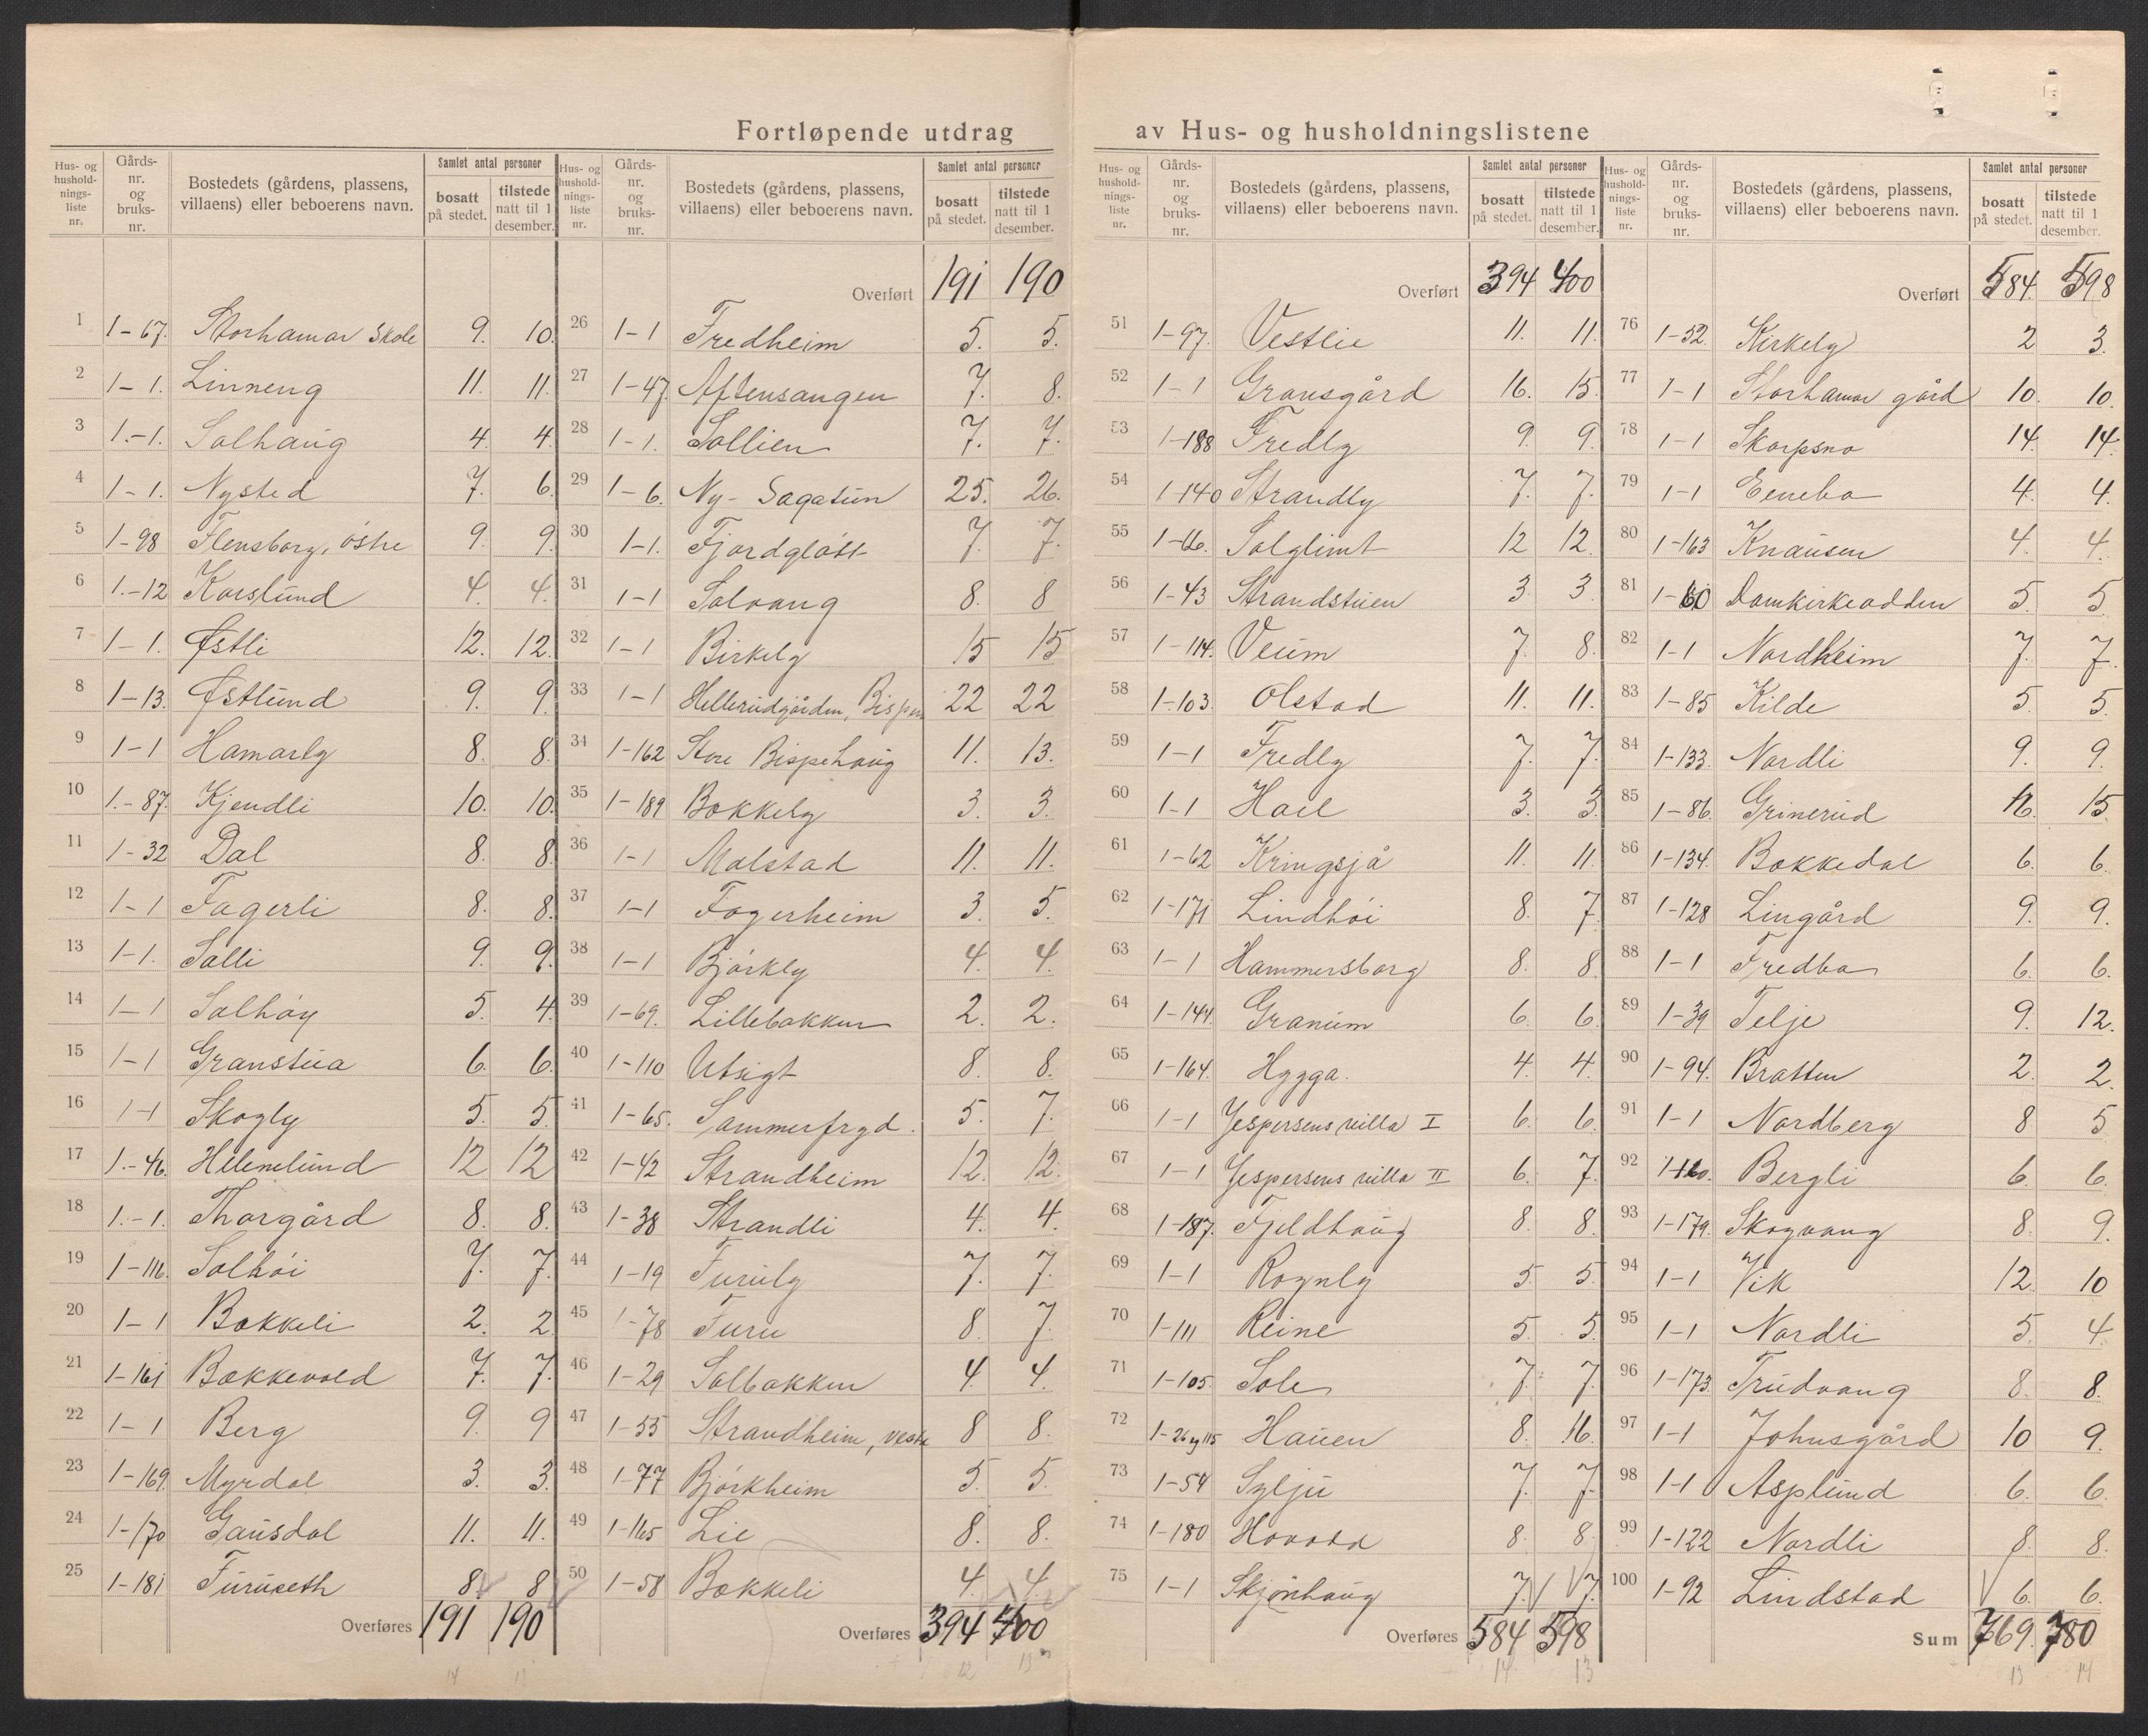 Fortløpende utdrag av Hus- og husholdningslistene
Hus- og hushold-nings-liste nr. Gårds-nr. og bruks-nr. Bostedets (gårdens, plassens, villaens) eller beboerens navn. Samlet antal personer bosatt på stedet. tilstede natt til 1 desember.
1 1-67. Storhamar Skole 9. 10.
2 1-1. Linneng 11. 11.
3 1.-1. Solhaug 4. 4.
4 1-1. Nysted 7. 6.
5 1-98 Flensborg, østre 9. 9.
6 1.-12 Korslund 4. 4.
7 1-1. Østli 12. 12.
8 1-13. Østlund 9. 9.
9 1-1 Hamarly 8. 8.
10 1.-87. Kjendli 10. 10.
11 1-32 Dal 8. 8.
12 1-1 Fagerli 8. 8.
13 1-1. Solli 9. 9.
14 1-1 Solhøy 5. 4.
15 1-1 Granstua 6. 6.
16 1-1 Skogly 5. 5.
17 1.-46. Helenelund 12 12
18 1.-1. Thorgård 8. 8.
19 1-116. Solhøi 7. 7.
20 1-1 Bakkeli 2. 2.
21 1-161 Bakkevold 7. 7.
22 1-1 Berg 9. 9
23 1-169. Myrdal 3. 3.
24 1-170 Gausdal 11. 11.
25 1-181 Furuseth 8. 8
Overføres 191 190
14
Hus- og hushold-nings-liste nr. Gårds-nr. og bruks-nr. Bostedets (gårdens, plassens, villaens) eller beboerens navn. Samlet antal personer bosatt på stedet. tilstede natt til 1 desember.
Overført 191 190
26 1-1 Fredheim 5. 5.
27 1-47. Aftensangen 7. 8.
28 1-1. Sollien 7. 7.
29 1-6. Ny-Sagatun 25. 26.
30 1-1. Fjordgløtt 7. 7.
31 1-1 Solvang 8. 8
32 1-1 Birkely 15 15
33 1-1 Hellerudgården, Bispen 22 22
34 1-162 Store Bispehaug 11. 13.
35 1-189 Bakkely 3. 3.
36 1-1 Malstad 11. 11.
37 1-1 Fagerheim 3. 5.
38 1-1 Bjørkly 4. 4.
39 1-69. Lillebakken 2. 2.
40 1-110 Utsigt 8. 8.
41 1-65. Sommerfryd. 5. 7.
42 1-42 Strandheim 12. 12.
43 1-38 Strandli 4. 4.
44 1-19 Furuly 7. 7.
45 1-78 Furu 8. 7.
46 1-29 Solbakken 4. 4.
47 1-55 Strandheim, vestre 8 8.
48 1-77 Bjørkheim 5 5.
49 1-165 Lie 8. 8.
50 1-58 Bakkeli 4. 4.
Overføres 394 400
12 13
Hus- og hushold-nings-liste nr. Gårds-nr. og bruks-nr. Bostedets (gårdens, plassens, villaens) eller beboerens navn. Samlet antal personer bosatt på stedet. tilstede natt til 1 desember.
Overført 394 400
51 1-97. Vestlie 11. 11.
52 1-1 Gransgård 16. 15.
53 1-188 Fredly 9. 9.
54 1-140 Strandly 7. 7.
55 1-66. Solglimt 12 12.
56 1-43 Strandstuen 3. 3.
57 1-114. Veum 7. 8.
58 1-103. Olstad 11. 11.
59 1-1 Fredly 7. 7.
60 1-1 Hael 3. 3.
61 1-62 Kringsjå 11. 11.
62 1-171 Lindhøi 8. 7.
63 1-1 Hammersborg 8. 8.
64 1-144. Granum 6. 6.
65 1-164. Hygga. 4. 4.
66 1-1 Jespersens villa I 6. 6.
67 1-1 Jespersens villa II 6. 7.
68 1-187. Fjeldhaug 8. 8.
69 1-1 Rognly 5. 5.
70 1-111 Reine 5. 5.
71 1-105. Sole 7. 7.
72 1-26 og 115 Hauen 8. 16.
73 1-54 Sylju 7. 7.
74 1-180 8. 8.
75 1-1 Skjønhaug 7. 7.
Overføres 584 598
14 13
Hus- og hushold-nings-liste nr. Gårds-nr. og bruks-nr. Bostedets (gårdens, plassens, villaens) eller beboerens navn. Samlet antal personer bosatt på stedet. tilstede natt til 1 desember.
Overført 584. 598
76 1-52. Kirkely 2 3.
77 1-1 Storhamar gård 10. 10.
78 1-1 Skorpsno 14. 14.
79 1-1 Enebo 4. 4.
80 1-163 Knausen 4. 4.
81 1-60 Domkirkeodden 5. 5.
82 1-1 Nordheim 7. 7.
83 1-85 Kilde 5. 5.
84 1-133. Nordli 9. 9.
85 1-86. Grinerud 15.
86 1-134. Bakkedal 6. 6.
87 1-128 Lingård 9. 9.
88 1-1 Fredbo 6. 6.
89 1-39 Telje 9. 12.
90 1-94. Bratten 2. 2.
91 1-1 Nordberg 8 5
92 1-160. Bergli 6. 6.
93 1-179. Skogvang 8. 9.
94 1-1 Vik 12. 10
95 1-1 Nordli 5. 4.
96 1-173. Trudvang 8. 8.
97 1-1 Johnsgård 10 9.
98 1-1 Asplund 6. 6.
99 1-122 Nordli 8. 8.
100 1-92 Lindstad 6. 6.
Sum 769. 780
13 14